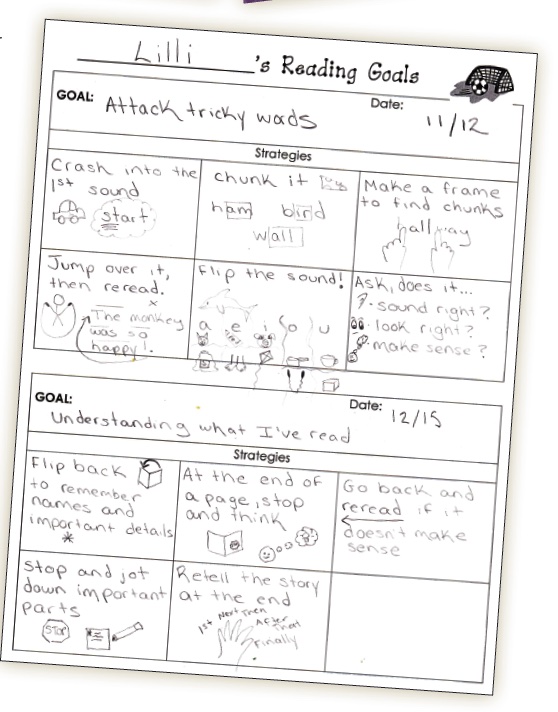 Lilli's Reading Goals
GOAL: Attack tricky words
Date: 11/12
Strategies
Crash into the
1st sound
start
chunk it
ham bird
wall
Make a frame
to find chunks
hallway
Jump over it,
then reread.
x
The monkey
was so
happy!
Flip the sound!
a e i o u
Ask, does it...
? sound right?
look right?
make sense?
GOAL:
Understanding what I've read
Date: 12/15
Strategies
Flip back
to remember
names and
important details
*
At the end of
a page, stop
and think
Go back and
reread if it
doesn't make
sense
Stop and jot
down important
parts
STOP
Retell the story
at the end
1st Next Then After that
Finally